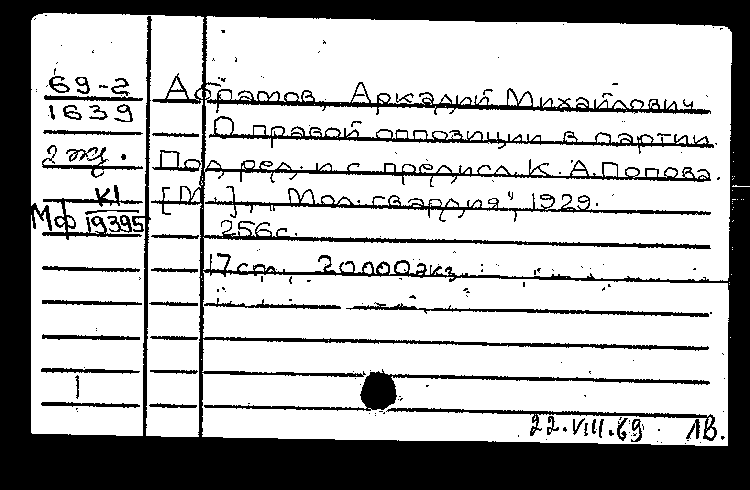 69-2
1639
2 экз.
Мф К1
19395
Абрамов, Аркадий Михайлович
О правой оппозиции в партии.
Под ред. и с предисл. К. А. Попова.
[М.], „Мол. гвардия", 1929.
256с.
17см. 20000экз.
1
22.VIII.69 1В.